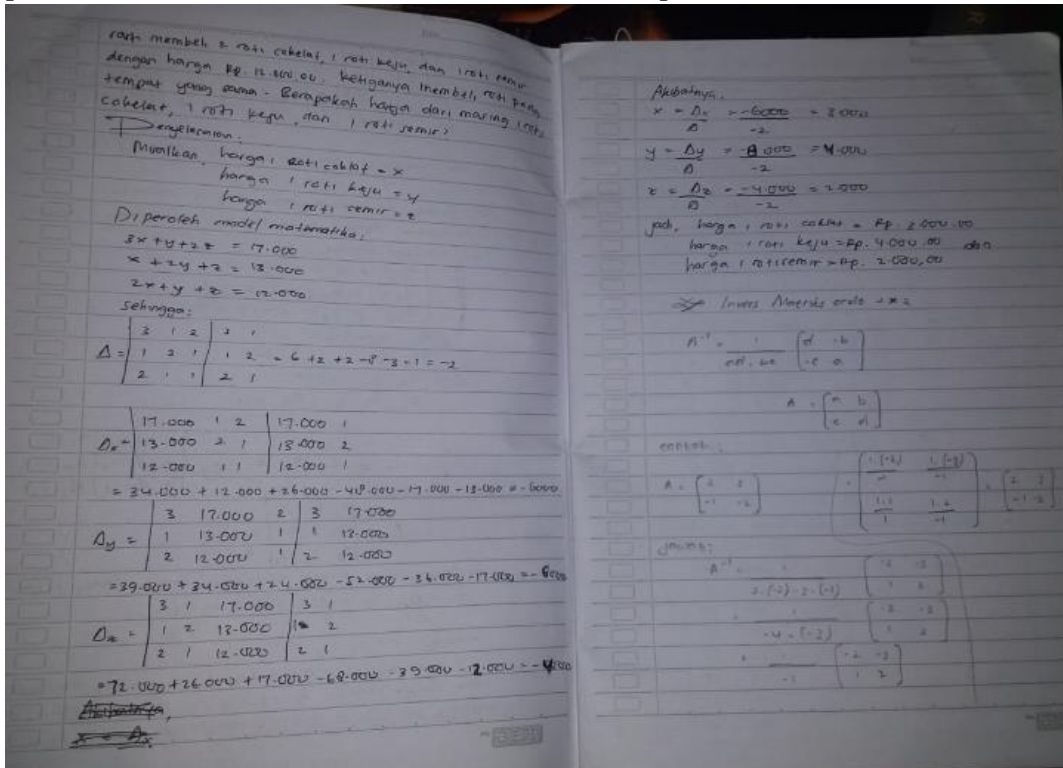 roti membeli 2 roti cokelat, 1 roti keju, dan 1 roti semir
dengan harga Rp. 12.000,00. Ketiganya membeli roti pada
tempat yang sama. Berapakah harga dari masing 1 roti
cokelat, 1 roti keju, dan 1 roti semir?
Penyelesaian:
Misalkan harga 1 roti coklat = x
harga 1 roti keju = y
harga 1 roti semir = z
Diperoleh model matematika:
3x + y + 2z = 17.000
x + 2y + z = 13.000
2x + y + z = 12.000
sehingga:
Δ = | 3 1 2 | 3 1
| 1 2 1 | 1 2 = 6 + 2 + 2 - 8 - 3 - 1 = -2
| 2 1 1 | 2 1
| 17.000 1 2 | 17.000 1
Δx = | 13.000 2 1 | 13.000 2
| 12.000 1 1 | 12.000 1
= 34.000 + 12.000 + 26.000 - 48.000 - 17.000 - 13.000 = -6000
| 3 17.000 2 | 3 17.000
Δy = | 1 13.000 1 | 1 13.000
| 2 12.000 1 | 2 12.000
= 39.000 + 34.000 + 24.000 - 52.000 - 36.000 - 17.000 =
| 3 1 17.000 | 3 1
Δz = | 1 2 13.000 | 1 2
| 2 1 12.000 | 2 1
= 72.000 + 26.000 + 17.000 - 68.000 - 39.000 - 12.000 = -4000
Akibatnya,
x = Δx
Akibatnya,
x = Δx/Δ = -6000/-2 = 3.000
y = Δy/Δ = -8.000/-2 = 4.000
z = Δz/Δ = -4.000/-2 = 2.000
jadi, harga 1 roti coklat = Rp. 3.000.00
harga 1 roti keju = Rp. 4.000.00 dan
harga 1 roti semir = Rp. 2.000,00
Invers Matriks ordo 2x2
A⁻¹ = 1/ad.bc (d -b
-c a)
A = (a b
c d)
contoh:
A = (2 3
-1 -2)
= (2 3
-1 -2)
A⁻¹ = 1/2.(-2)-3.(-1) (-2 -3
1 2)
= 1/-4-(-3) (-2 -3
1 2)
= 1/-1 (-2 -3
1 2)